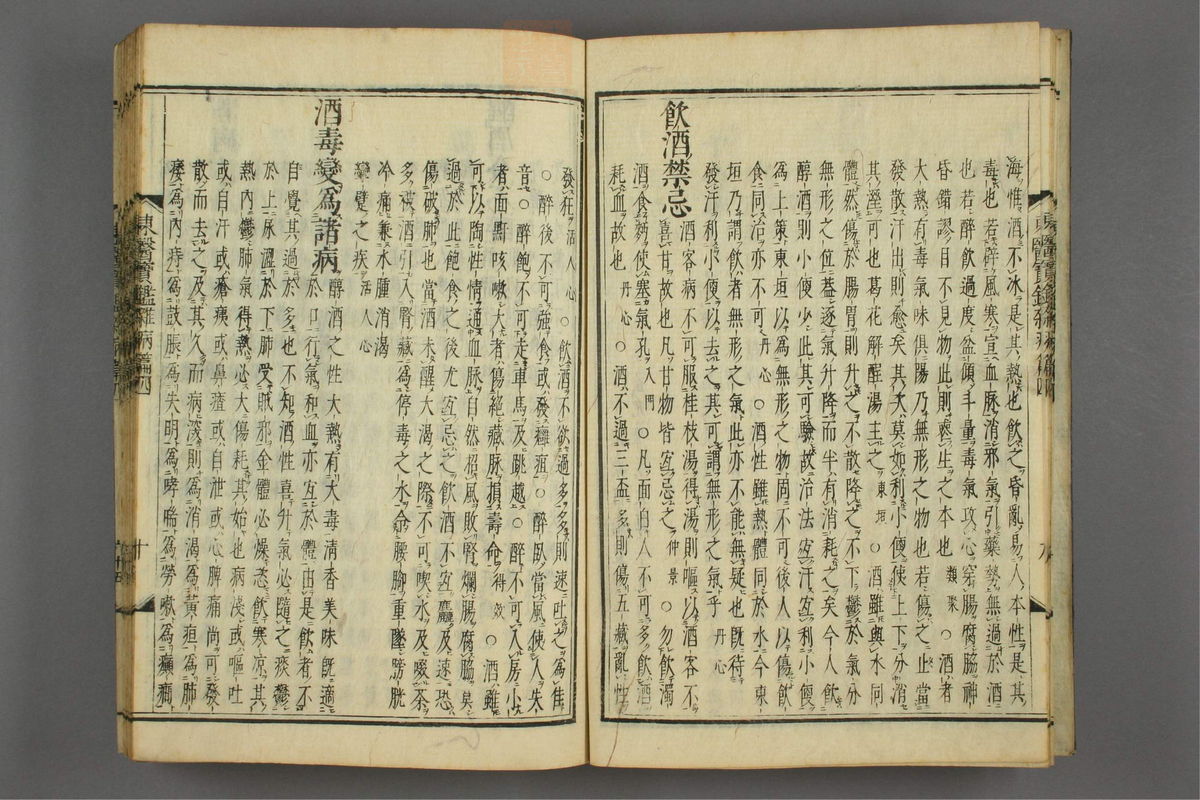 海惟酒不冰是其熱也飮之昏亂易人本性是其
毒也若辟風寒宣血脉消邪氣引藥勢無過於酒
也若醉飮過度盆傾斗量毒氣攻心穿腸腐脇神
昏錯謬目不見物此則喪生之本也類聚○酒者
大熱有毒氣味俱陽乃無形之物也若傷之止當
發散汗出則愈矣其次莫如利小便使上下分消
其溼可也葛花解酲湯主之東垣○酒雖與水同
體然傷於腸胃則升之不散降之不下鬱於氣分
無形之位盖逐氣升降而半有消耗之矣今人飮
醇酒則小便少此其可驗故治法宜汗宜利小便
爲上策東垣以爲無形之物固不可後人以傷飮
食同治亦不可丹心○酒性雖熱體同於水今東
垣乃謂飮者無形之氣此亦不能無疑也旣待
發汗利小便以去之其可謂無形之氣乎丹心
飮酒禁忌
酒客病不可服桂枝湯得湯則嘔以酒客不
喜甘故也甘物皆宜忌之仲景○勿飮濁
酒食麪使塞氣孔入門○凡面白人不可多飮酒
耗血故也丹心○酒不過三盃多則傷五藏亂性
發狂活人心○飮酒不欲過多多則速吐之爲佳
○醉後不可強食或發癰疽○醉臥當風使人失
音○醉飽不可走車馬及跳越○醉不可入房小
者面䵟咳嗽大者傷絕藏脉損壽命得效○酒雖
可以陶性情通血脉自然招風敗腎爛腸腐脇莫
過於此飽食之後尤宜忌之飮酒不宜麤及速恐
傷破肺也當酒未醒大渴之際不可喫水及啜茶
多被酒引入腎藏爲停毒之水令腰脚重墜膀胱
冷痛兼水腫消渴
攣躄之疾活人心
酒毒變爲諸病
醇酒之性大熱有大毒淸香美味旣適
於口行氣和血亦宜於體由是飮者不
自覺其過於多也不知酒性喜升氣必隨之痰鬱
於上尿澀於下肺受賊邪金體必燥恣飮寒凉其
熱內鬱肺氣得熱必大傷耗其始也病淺或嘔吐
或自汗或瘡痍或鼻齄或自泄或心脾痛尙可發
散而去之及其久而病深則爲消渴爲黃疸爲肺
痿爲內痔爲鼓脹爲失明爲哮喘爲勞嗽爲癲癇
東醫寶鑑雜病篇四
十
東醫寶鑑雜病篇四
九